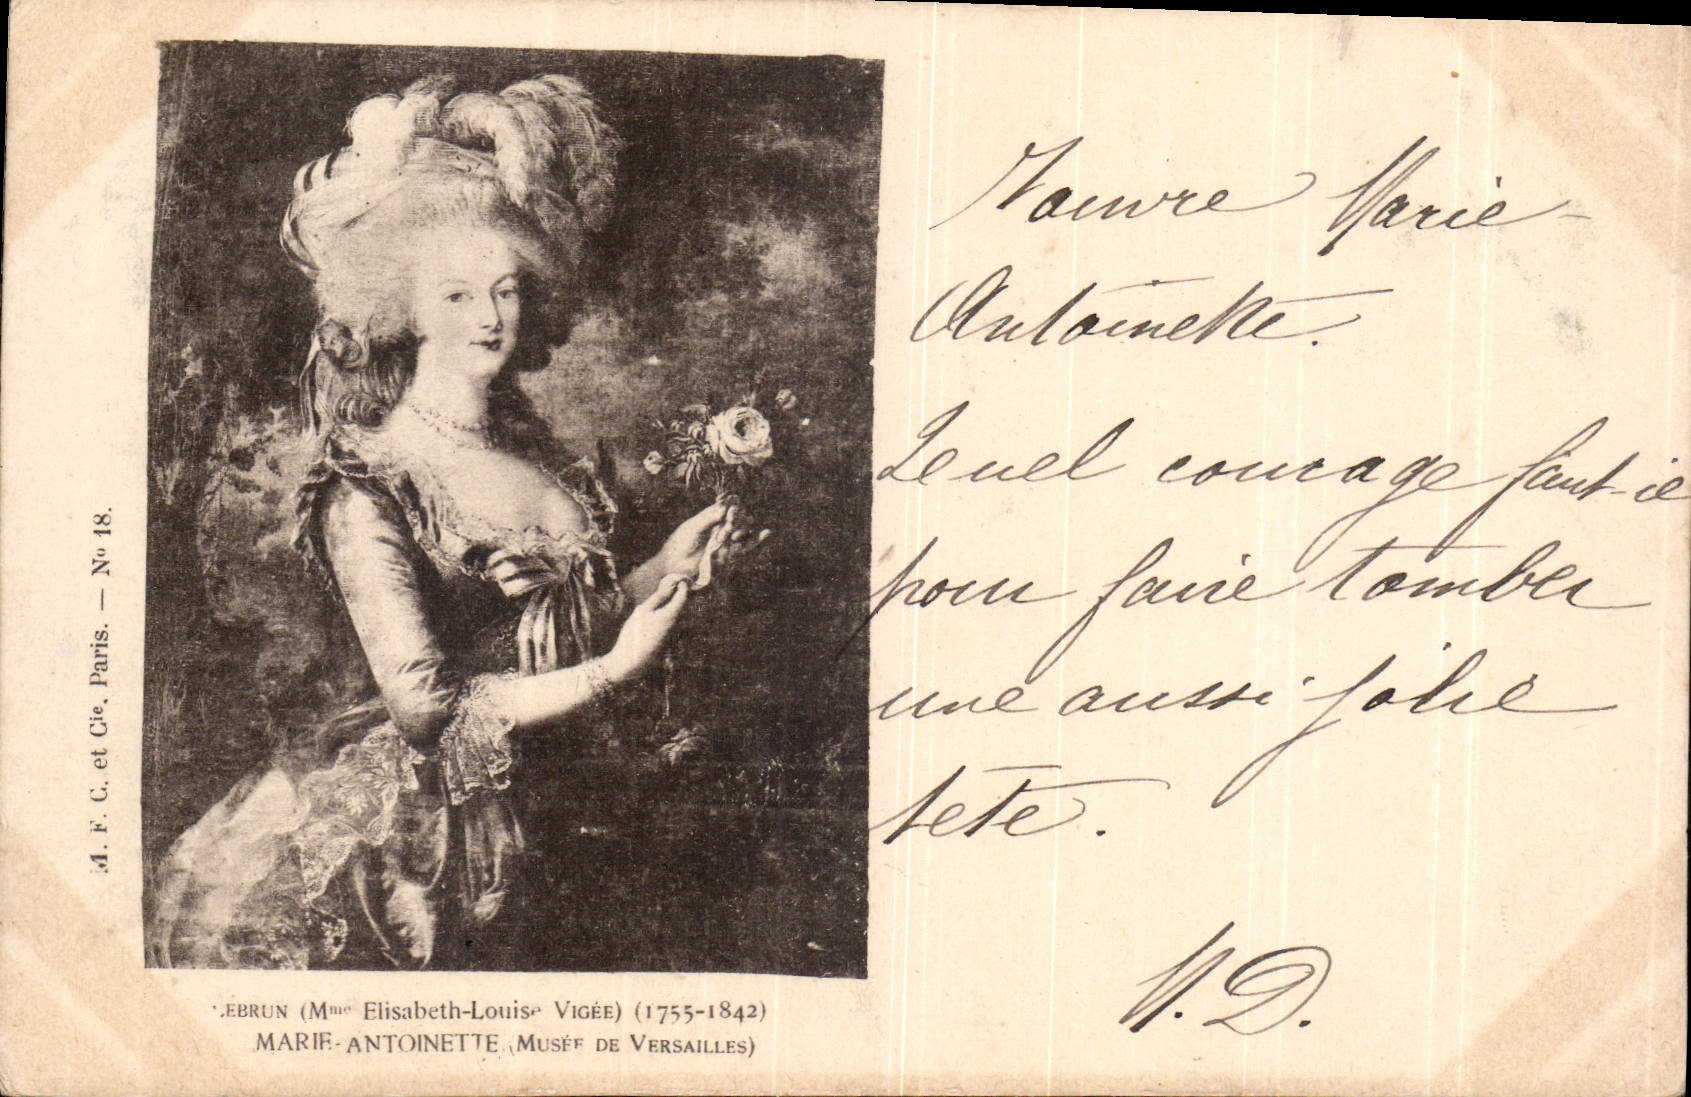 Pauvre Marie-
Antoinette.
Quel courage faut-il
pour faire tomber
une aussi jolie
tête.
M. D.
M. F. C. et Cie, Paris. — No 18.
LEBRUN (Mme Elisabeth-Louise VIGÉE) (1755-1842)
MARIE-ANTOINETTE (MUSÉE DE VERSAILLES)